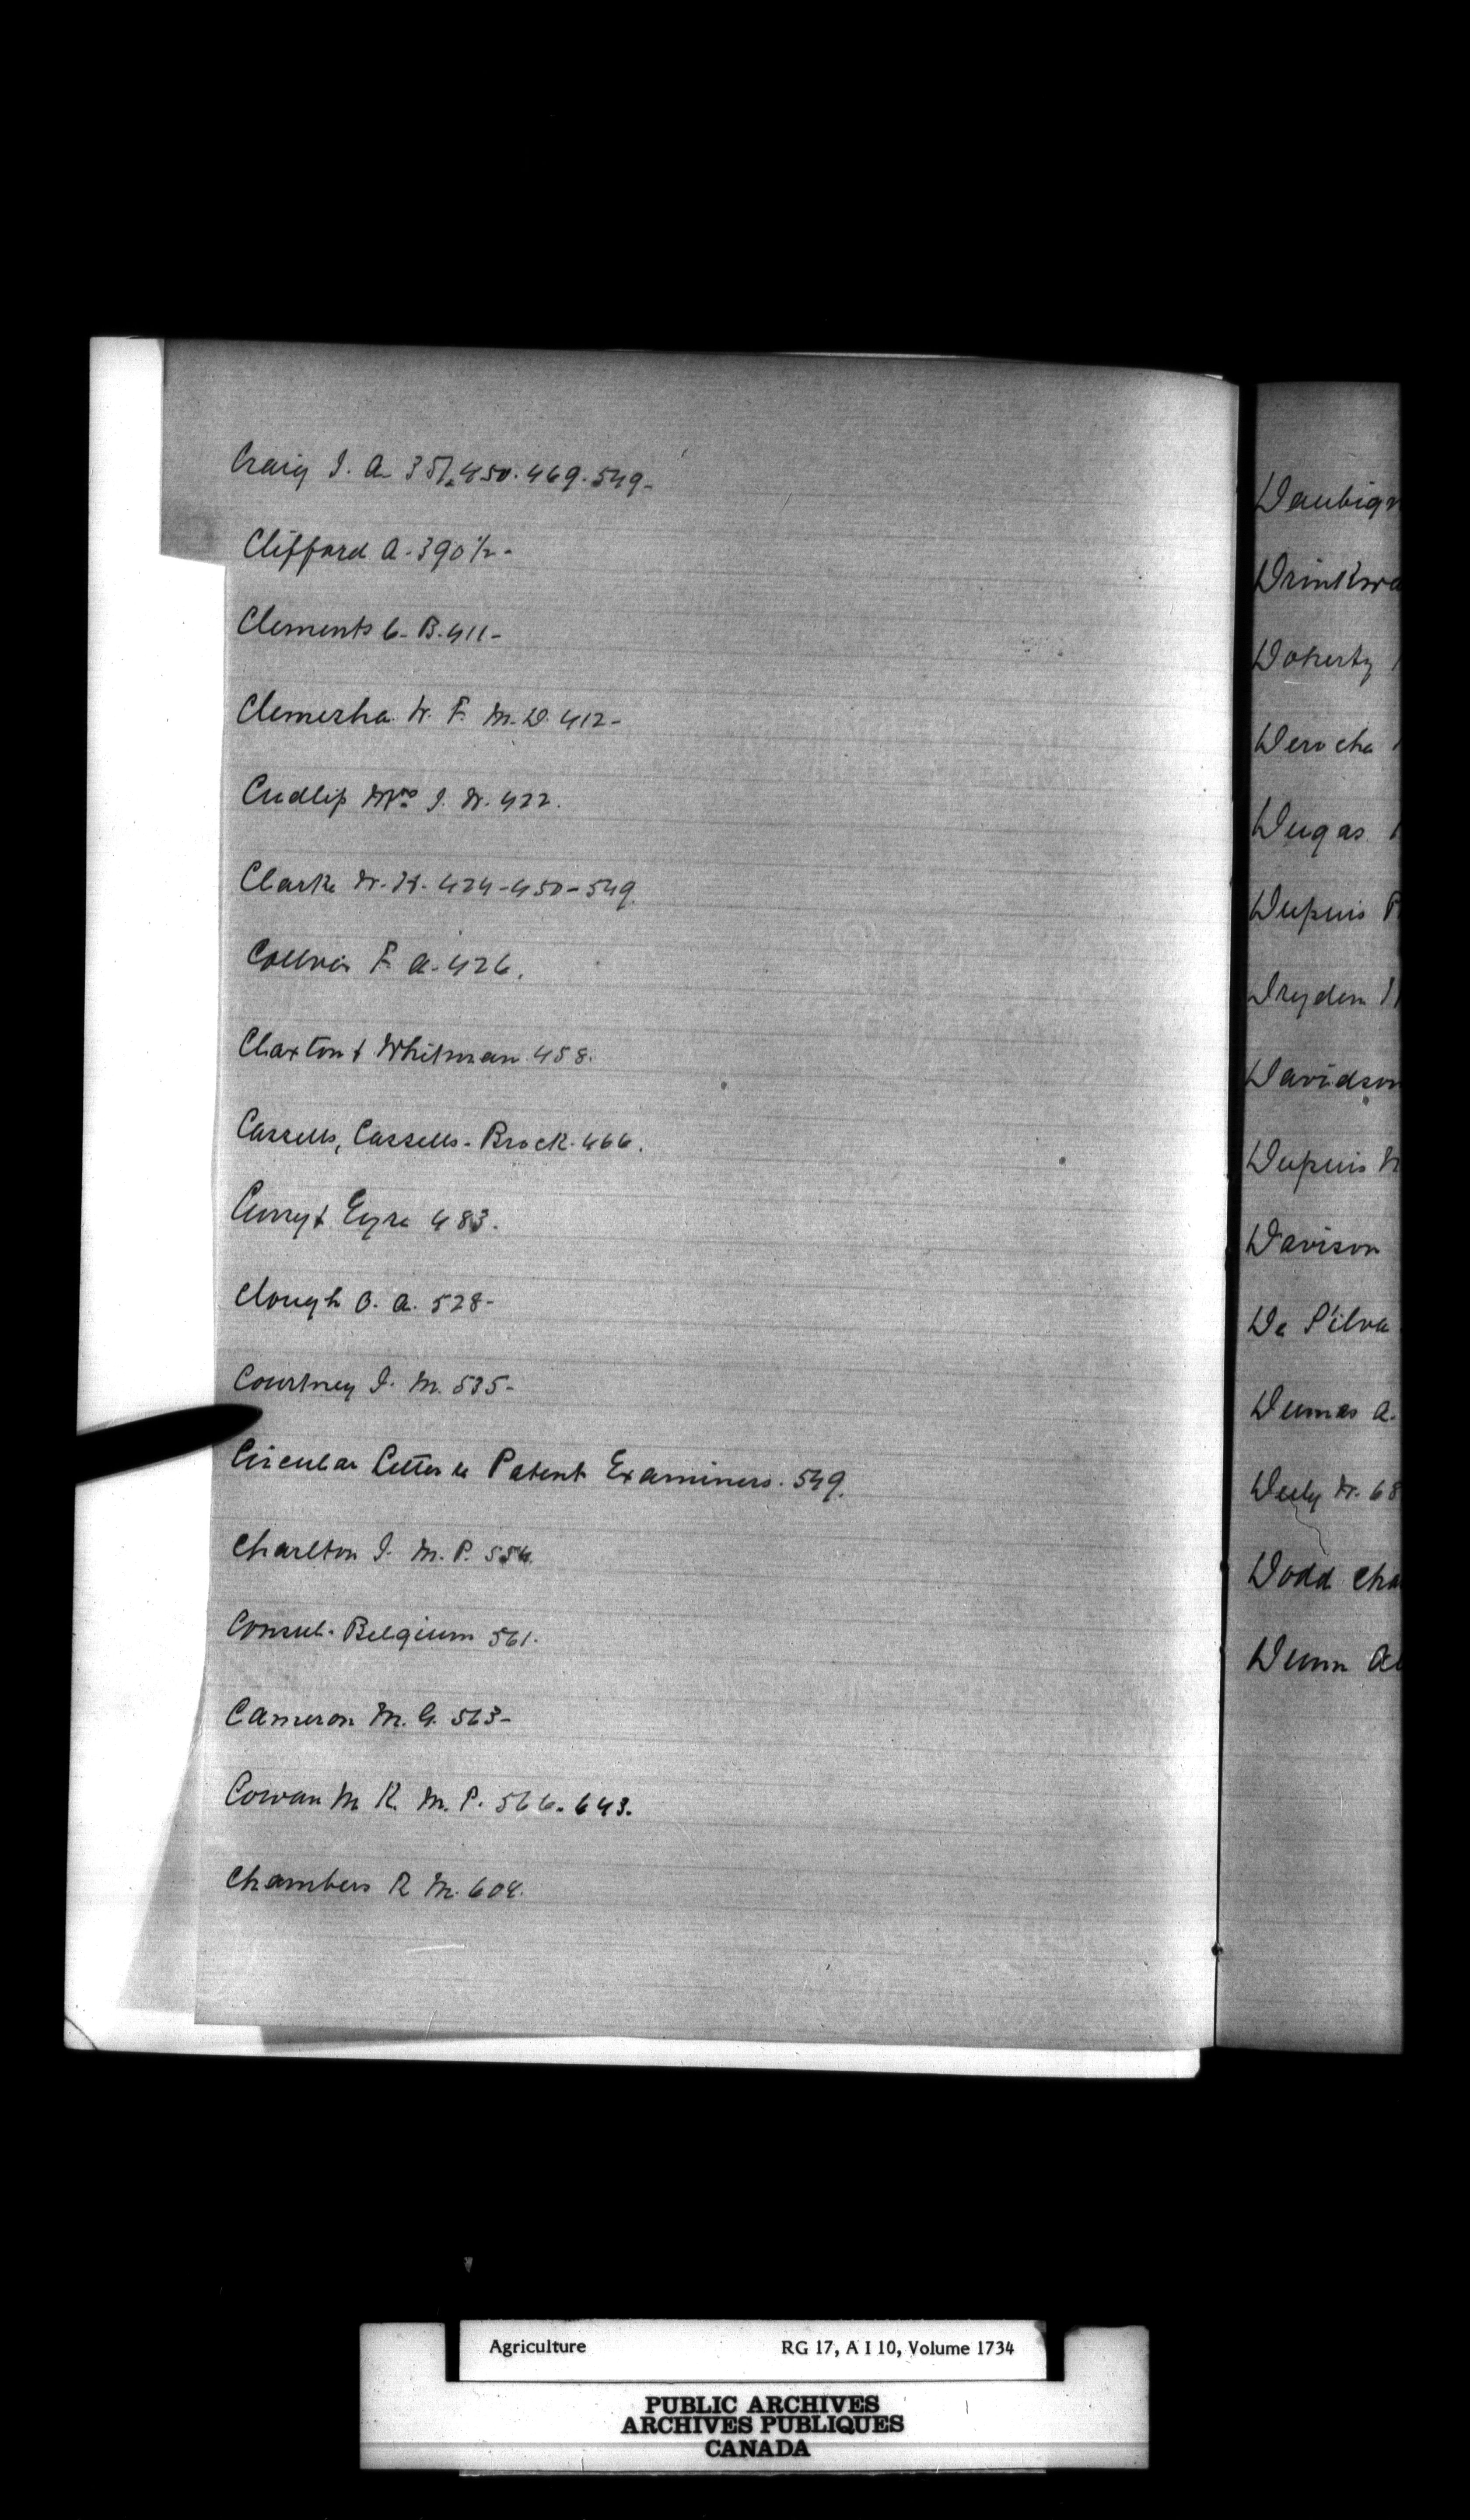 Craig J. A. 351.450.469.549-
Clifford A. 390½-
Clements C. B. 411-
Clemesha W. F. M.D. 412-
Cudlip Mrs J. W. 422.
Clarke W. H. 424-450-549.
F. A. 426.
Claxton & Whitman 458.
Cassells, Cassells-Brock. 466.
Curry & Eyre 483.
Clough O. A. 528-
Courtney J. M. 535-
Circular Letter to Patent Examiners. 549.
Charlton J. M. P. 554.
Consul-Belgium 561.
Cameron M. G. 563-
Cowan M K. M. P. 566. 643.
Chambers R M. 604.
Daubign
Drinkwa
Doherty
Deroche
Dugas
Dupuis
Dryden
Davidson
Dupuis
Davison
De S'ilva
Dumas A.
Duly W. 68
Dodd Cha
Dunn
Agriculture RG 17, A I 10, Volume 1734
PUBLIC ARCHIVES
ARCHIVES PUBLIQUES
CANADA